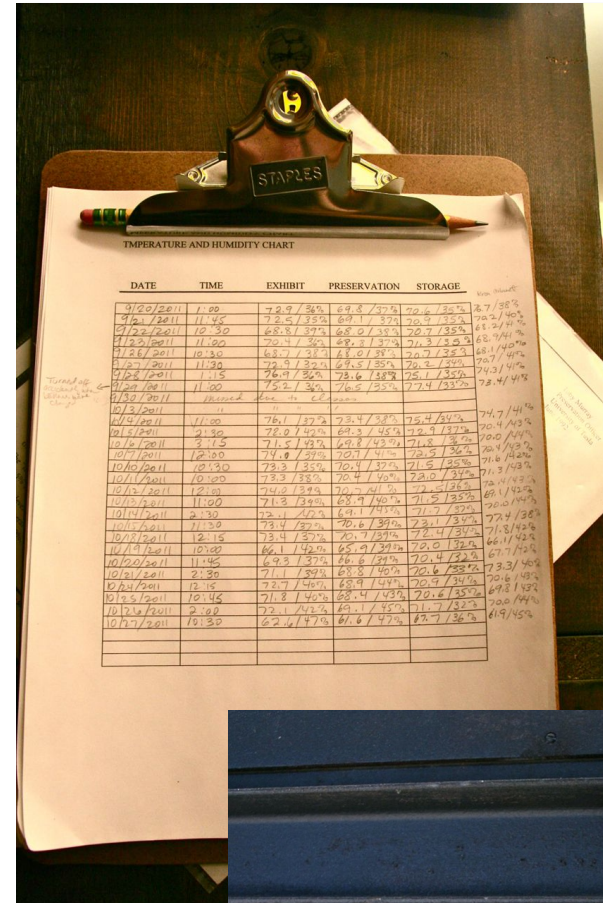 STAPLES
TMPERATURE AND HUMIDITY CHART
DATE TIME EXHIBIT PRESERVATION STORAGE
9/20/2011 1:00 72.9/36% 69.8/37% 70.6/35% 38%
9/21/2011 11:45 72.5/35% 69.1/37% 70.9/35% 70.2/40%
9/22/2011 10:30 68.8/39% 68.0/38% 70.7/35% 68.2/41%
9/23/2011 11:00 70.4/36% 68.8/37% 71.3/35% 68.9/41%
9/26/2011 10:30 68.7/38% 68.0/38% 70.7/35% 68.1/40%
9/27/2011 11:30 72.9/32% 69.5/35% 70.2/34% 70.7/41%
9/28/2011 1:15 76.9/36% 73.6/38% 75.1/35% 74.3/41%
Turned off
9/29/2011 11:00 75.2/36% 76.5/35% 77.4/33% 73.4/41%
9/30/2011 missed due to
10/3/2011 " " " "
10/4/2011 11:00 76.1/37% 73.4/38% 75.4/34% 74.7/41%
10/5/2011 2:30 78.0/42% 69.3/45% 72.9/37% 70.4/43%
10/6/2011 3:15 71.5/43% 69.8/43% 71.8/36% 70.0/44%
10/7/2011 12:00 74.0/39% 70.7/41% 72.5/36% 70.4/43%
10/10/2011 10:30 73.3/35% 70.4/37% 71.5/35% 71.6/42%
10/11/2011 10:00 73.3/38% 70.4/40% 72.0/34% 71.3/43%
10/12/2011 12:00 74.0/39% 70.7/41% 72.5/36% 72.4/43%
10/13/2011 11:00 71.3/39% 68.9/40% 71.5/35% 69.1/42%
10/14/2011 2:30 72.1/42% 69.1/45% 71.7/37% 70.0/44%
10/15/2011 11:30 73.4/37% 70.6/39% 73.1/34% 77.4/38%
10/18/2011 12:15 73.4/37% 70.7/39% 72.4/34% 71.8/42%
10/19/2011 10:00 66.1/42% 65.9/39% 70.0/32% 66.1/42%
10/20/2011 11:45 69.3/37% 66.6/39% 70.4/32% 67.7/42%
10/21/2011 2:30 71.1/39% 68.8/40% 70.6/33% 73.3/40%
10/24/2011 12:15 72.7/40% 68.9/44% 70.9/34% 70.6/43%
10/25/2011 10:45 71.8/40% 68.4/43% 70.6/35% 69.8/43%
10/26/2011 2:00 72.1/42% 69.1/45% 71.7/32% 70.0/44%
10/27/2011 10:30 62.6/47% 61.6/47% 67.7/36% 61.9/45%